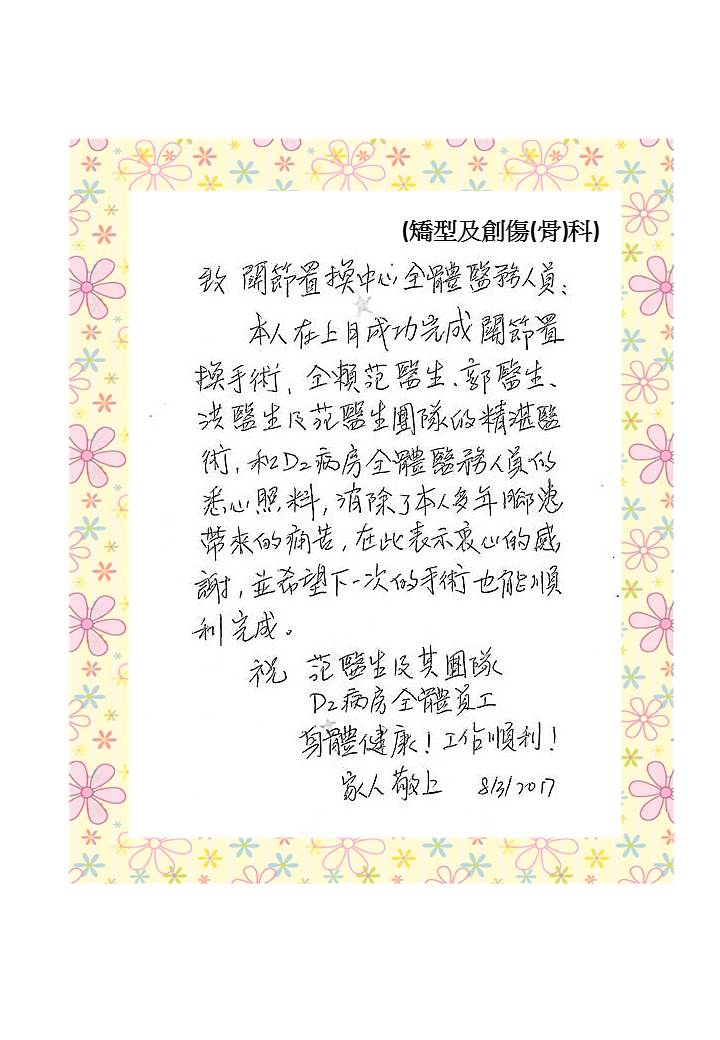 (矯型及創傷(骨)科)
致 關節置換中心全體醫務人員：
本人在上月成功完成關節置
換手術，全賴范醫生、郭醫生、
洪醫生及范醫生團隊的精湛醫
術，和D2病房全體醫務人員的
悉心照料，消除了本人多年腳患
帶來的痛苦，在此表示衷心的感
謝，並希望下一次的手術也能順
利完成。
祝 范醫生及其團隊
D2病房全體員工
身體健康！工作順利！
家人敬上 8/3/2017